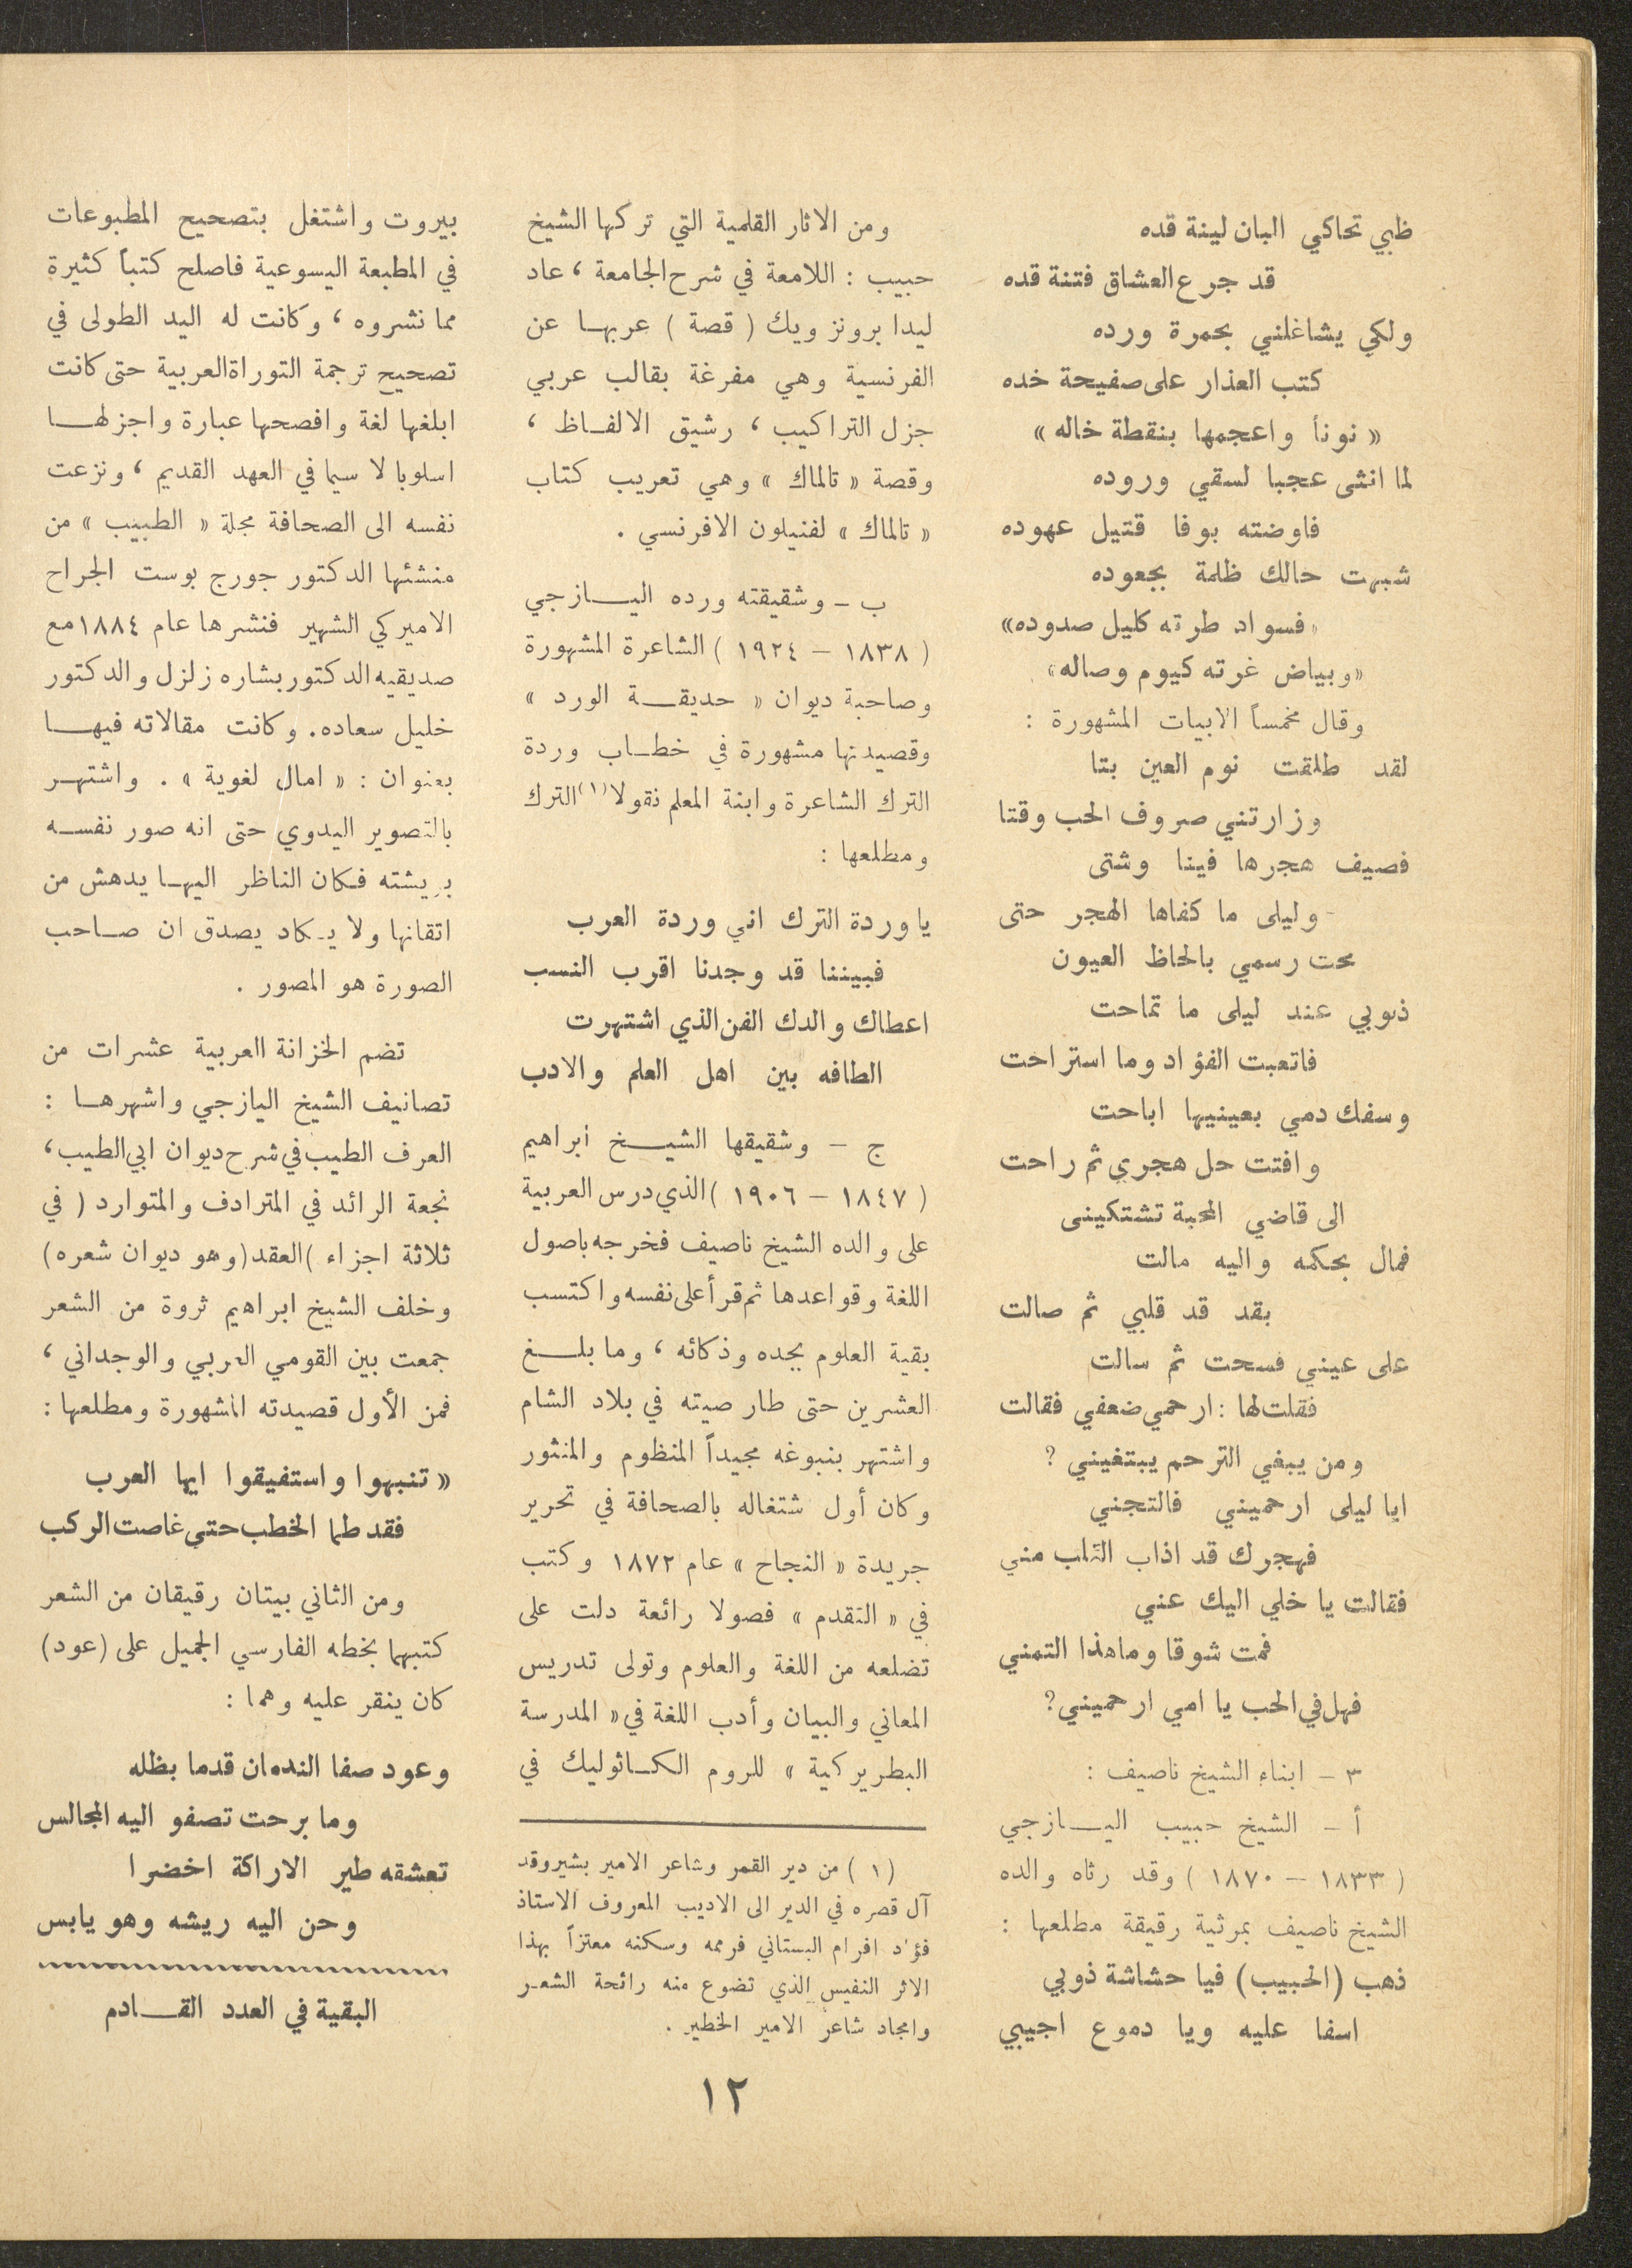 ظبي تحاكي البان لينة قده
قد جرع العشاق فتنة قده
ولكي يشاغلني بحمرة ورده
كتب العذار على صفيحة خده
« نوناً واعجمها بنقطة خاله »
لما انثى عجبا لسقي وروده
فاوضته بوفا قتيل عهوده
شبهت حالك ظلمة بجعوده
«فسواد طرته كليل صدوده»
«وبياض غرته كيوم وصاله»
وقال مخمساً الابيات المشهورة :
لقد طلقت نوم العين بتا
وزارتني صروف الحب وقتا
فصيف هجرها فينا وشتى
وليلى ما كفاها الهجر حتى
محت رسمي بالحاظ العيون
ذنوبي عند ليلى ما تماحت
فاتعبت الفؤاد وما استراحت
وسفك دمي بعينيها اباحت
وافتت حل هجري ثم راحت
الى قاضي المحبة تشتكينى
فمال بحكمه واليه مالت
بقد قد قلبي ثم صالت
على عيني فسحت ثم سالت
فقلت لها : ارحمي ضعفي فقالت
ومن يبغي الترحم يبتغيني ؟
ايا ليلى ارحميني فالتجني
فهجرك قد اذاب القلب مني
فقالت يا خلي اليك عني
فمت شوقا وماهذا التمني
فهل في الحب يا امي ارحميني؟
٣ – ابناء الشيخ ناصيف :
أ – الشيخ حبيب اليـازجي
( ١٨٣٣ – ١٨٧٠ ) وقد رثاه والده
الشيخ ناصيف بمرثية رقيقة مطلعها :
ذهب (الحبيب) فيا حشاشة ذوبي
اسفا عليه ويا دموع اجيبي
ومن الاثار القلمية التي تركها الشيخ
حبيب : اللامعة في شرح الجامعة ، عاد
ليدا برونزويك ( قصة ) عربها عن
الفرنسية وهي مفرغة بقالب عربي
جزل التراكيب ، رشيق الالفاظ ،
وقصة « تالماك » وهي تعريب كتاب
« تالماك » لفنيلون الافرنسي .
ب – وشقيقته ورده اليـازجي
( ١٨٣٨ – ١٩٢٤ ) الشاعرة المشهورة
وصاحبة ديوان « حديقـة الورد »
وقصيدتها مشهورة في خطـاب وردة
الترك الشاعرة وابنة المعلم نقولا(١) الترك
ومطلعها :
يا وردة الترك اني وردة العرب
فبيننا قد وجدنا اقرب النسب
اعطاك والدك الفن الذي اشتهرت
الطافه بين اهل العلم والادب
ج – وشقيقها الشيـخ ابراهيم
( ١٨٤٧ – ١٩٠٦ ) الذي درس العربية
على والده الشيخ ناصيف فخرجه باصول
اللغة وقواعدها ثم قرأ على نفسه واكتسب
بقية العلوم بجده وذكائه ، وما بلـغ
العشرين حتى طار صيته في بلاد الشام
واشتهر بنبوغه مجيداً المنظوم والمنثور
وكان أول شتغاله بالصحافة في تحرير
جريدة « النجاح » عام ١٨٧٢ وكتب
في « التقدم » فصولا رائعة دلت على
تضلعه من اللغة والعلوم وتولى تدريس
المعاني والبيان وأدب اللغة في « المدرسة
البطريركية » للروم الكـاثوليك في
(١) من دير القمر وشاعر الامير بشير وقد
آل قصره في الدير الى الاديب المعروف الاستاذ
فؤاد افرام البستاني فرممه وسكنه معتزاً بهذا
الاثر النفيس الذي تضوع منه رائحة الشعر
وامجاد شاعر الامير الخطير .
بيروت واشتغل بتصحيح المطبوعات
في المطبعة اليسوعية فاصلح كتباً كثيرة
مما نشروه ، وكانت له اليد الطولى في
تصحيح ترجمة التوراة العربية حتى كانت
ابلغها لغة وافصحها عبارة واجزلهـا
اسلوبا لا سيما في العهد القديم ، ونزعت
نفسه الى الصحافة مجلة « الطبيب » من
منشئها الدكتور جورج بوست الجراح
الاميركي الشهير فنشرها عام ١٨٨٤ مع
صديقيه الدكتور بشاره زلزل والدكتور
خليل سعاده. وكانت مقالاته فيهـا
بعنوان : « امال لغوية » . واشتهـر
بالتصوير اليدوي حتى انه صور نفسـه
بريشته فكان الناظر اليها يدهش من
اتقانها ولا يكاد يصدق ان صـاحب
الصورة هو المصور .
تضم الخزانة العربية عشرات من
تصانيف الشيخ اليازجي واشهرهـا :
العرف الطيب في شرح ديوان ابي الطيب،
نجعة الرائد في المترادف والمتوارد ( في
ثلاثة اجزاء ) العقد (وهو ديوان شعره)
وخلف الشيخ ابراهيم ثروة من الشعر
جمعت بين القومي العربي والوجداني ،
فمن الأول قصيدته المشهورة ومطلعها :
« تنبهوا واستفيقوا ايها العرب
فقد طما الخطب حتى غاصت الركب
ومن الثاني بيتان رقيقان من الشعر
كتبهما بخطه الفارسي الجميل على (عود)
كان ينقر عليه وهما :
وعود صفا الندمان قدما بظله
وما برحت تصفو اليه المجالس
تعشقه طير الاراكة اخضرا
وحن اليه ريشه وهو يابس
البقية في العدد القـادم
١٢